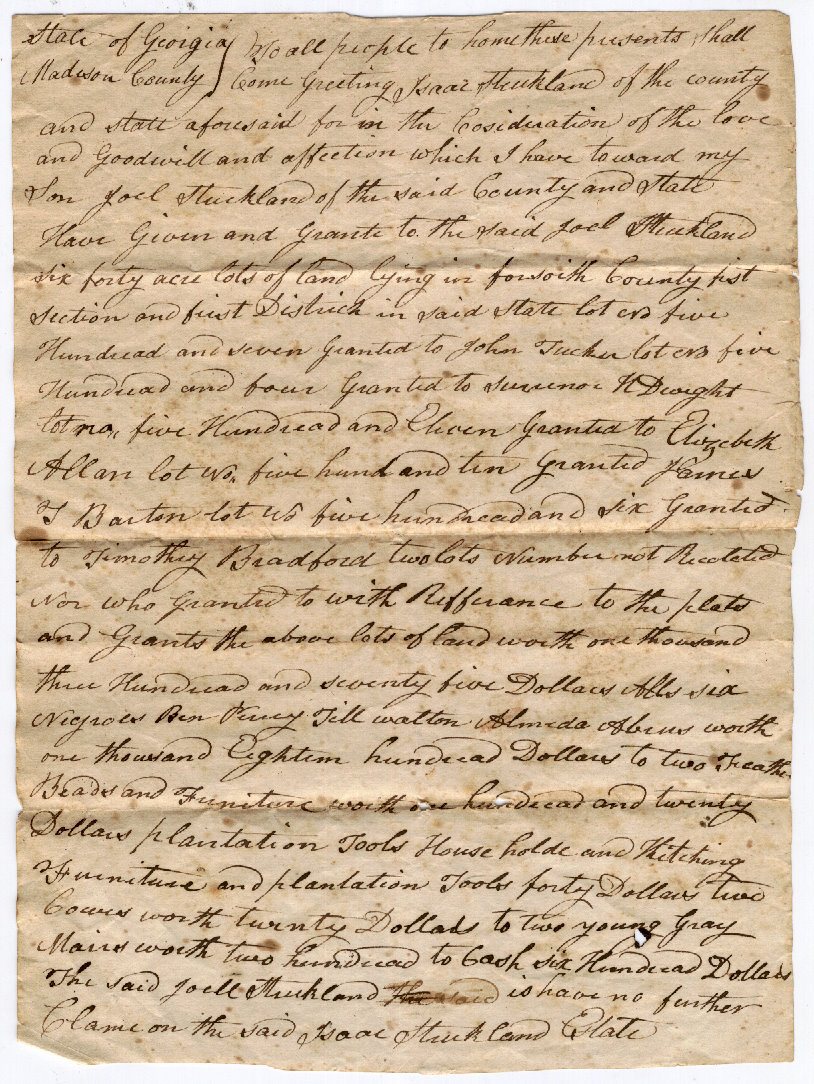 State of Georgia } To all people to home these presents shall
Madison County } Come Greeting Isaac Strickland of the county
and state aforesaid for in the Cosideration of the love
and Goodwill and affection which I have toward my
Son Joel Strickland of the said County and State
Have Given and Grante to the said Joel Strickland
six forty acre lots of land lying in forsoith County fist
Section and first District in said State lot No five
Hundread and seven Granted to John Tucker lot No five
Hundread and four Granted to H Dwight
lot no, five Hundread and Eleven Granted to Elizebeth
Allan lot No. five hund and ten Granted James
T Barton lot No five hundread and six Granted
to Timothy Bradford two lots Number not Recoleted
Nor who Granted to with Refferance to the plats
and Grants the above lots of land worth one thousand
three Hundread and seventy five Dollars Alls six
Negroes Ben Till walton Almeda worth
one thousand Eighteen hundread Dollars to two Feather
Beads and Funiture worth one hundread and twenty
Dollars plantation Tools House holde and Kitching
Furniture and plantation Tools forty Dollars two
Cowes worth twenty Dollars to two young Gray
Mairs worth two hundread to Cash six Hundread Dollars
The said Joell Strickland the said is have no further
Clame on the said Isaac Strickland Estate